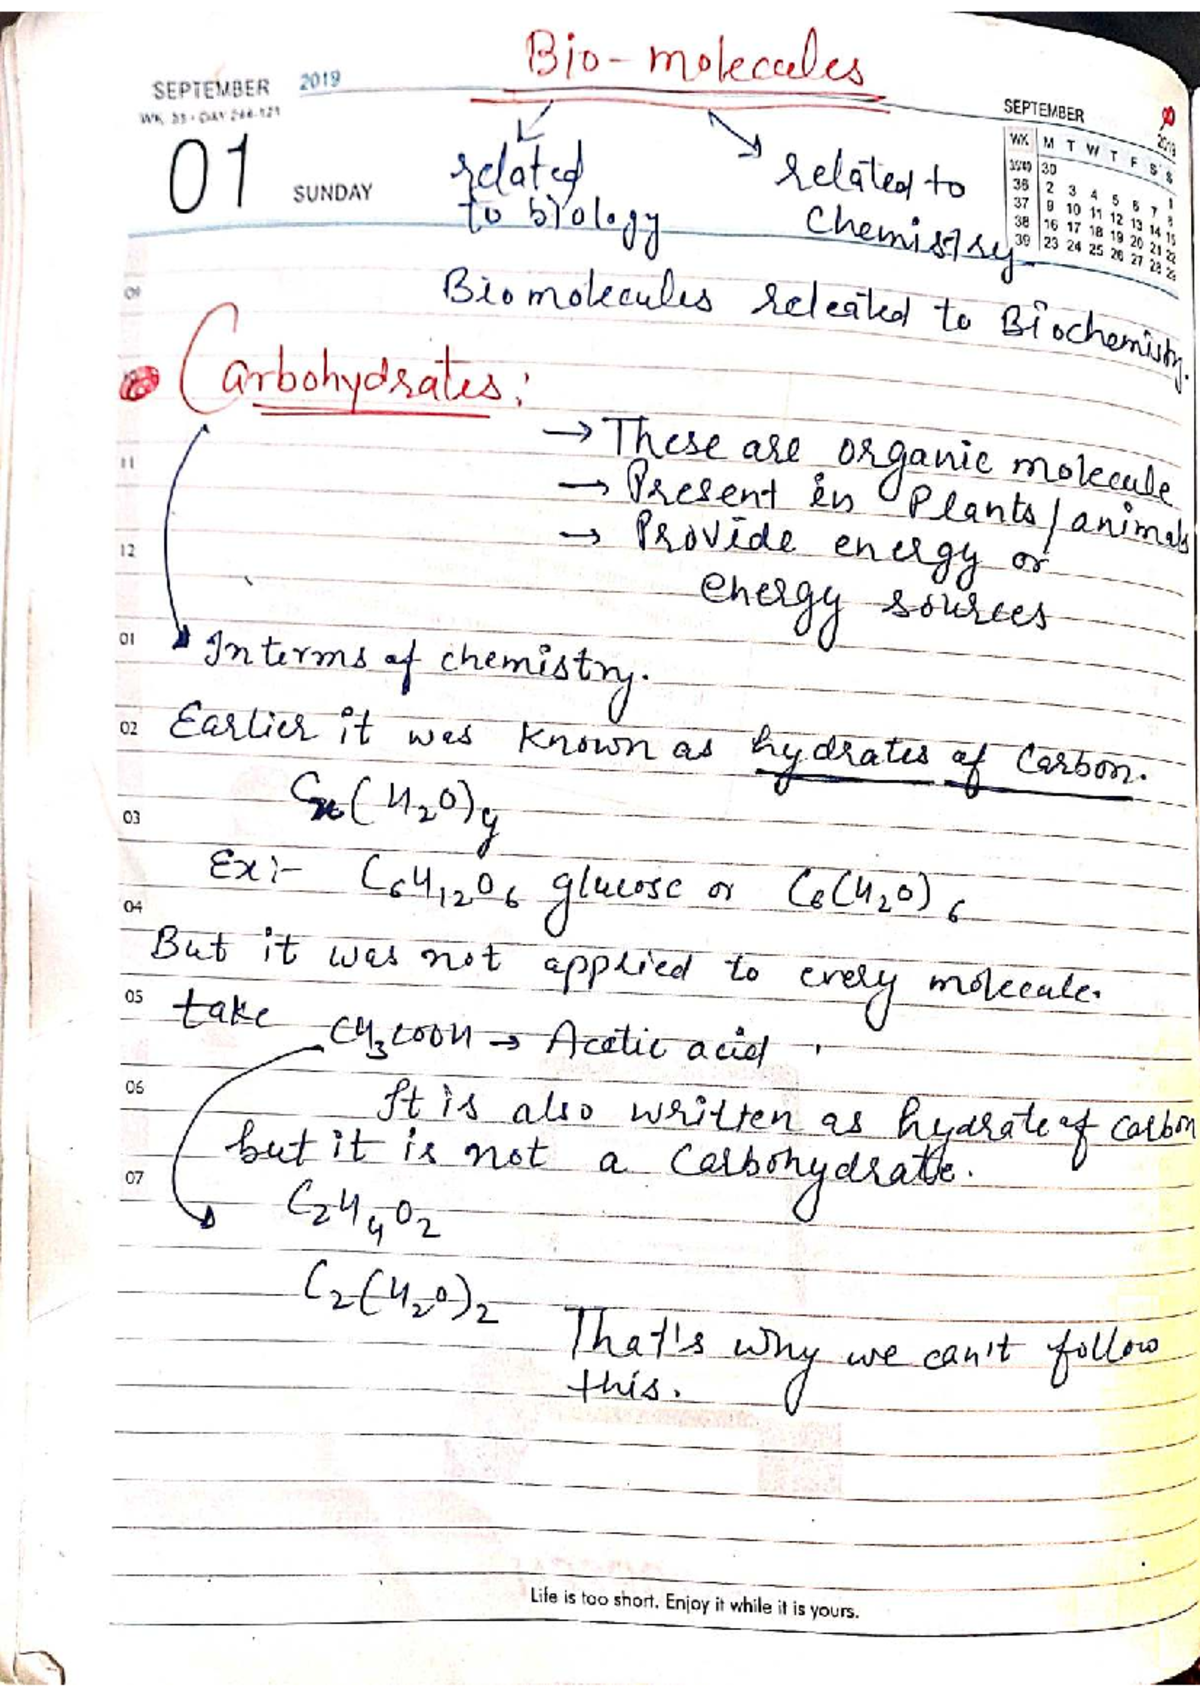 Bio-molecules
SEPTEMBER 2019
01 SUNDAY
related
to biology
related to
Chemistry
SEPTEMBER 2019
WK M T W T F S S
35/40 30 1
36 2 3 4 5 6 7 8
37 9 10 11 12 13 14 15
38 16 17 18 19 20 21 22
39 23 24 25 26 27 28 29
09
Biomolecules releated to Biochemistry.
Carbohydrates:
→ These are organic molecule
11
→ Present in Plants/animals
→ Provide energy or
12
energy sources
01
In terms of chemistry.
02 Earlier it was known as hydrates of Carbon.
Cx(H2O)y
03
Ex:- C6H12O6 glucose or C6(H2O)6
04
But it was not applied to every molecule.
05 take CH3COOH → Acetic acid
06
It is also written as hydrate of carbon
but it is not a Carbohydrate.
07
C2H4O2
C2(H2O)2
That's why we can't follow
this.
Life is too short. Enjoy it while it is yours.